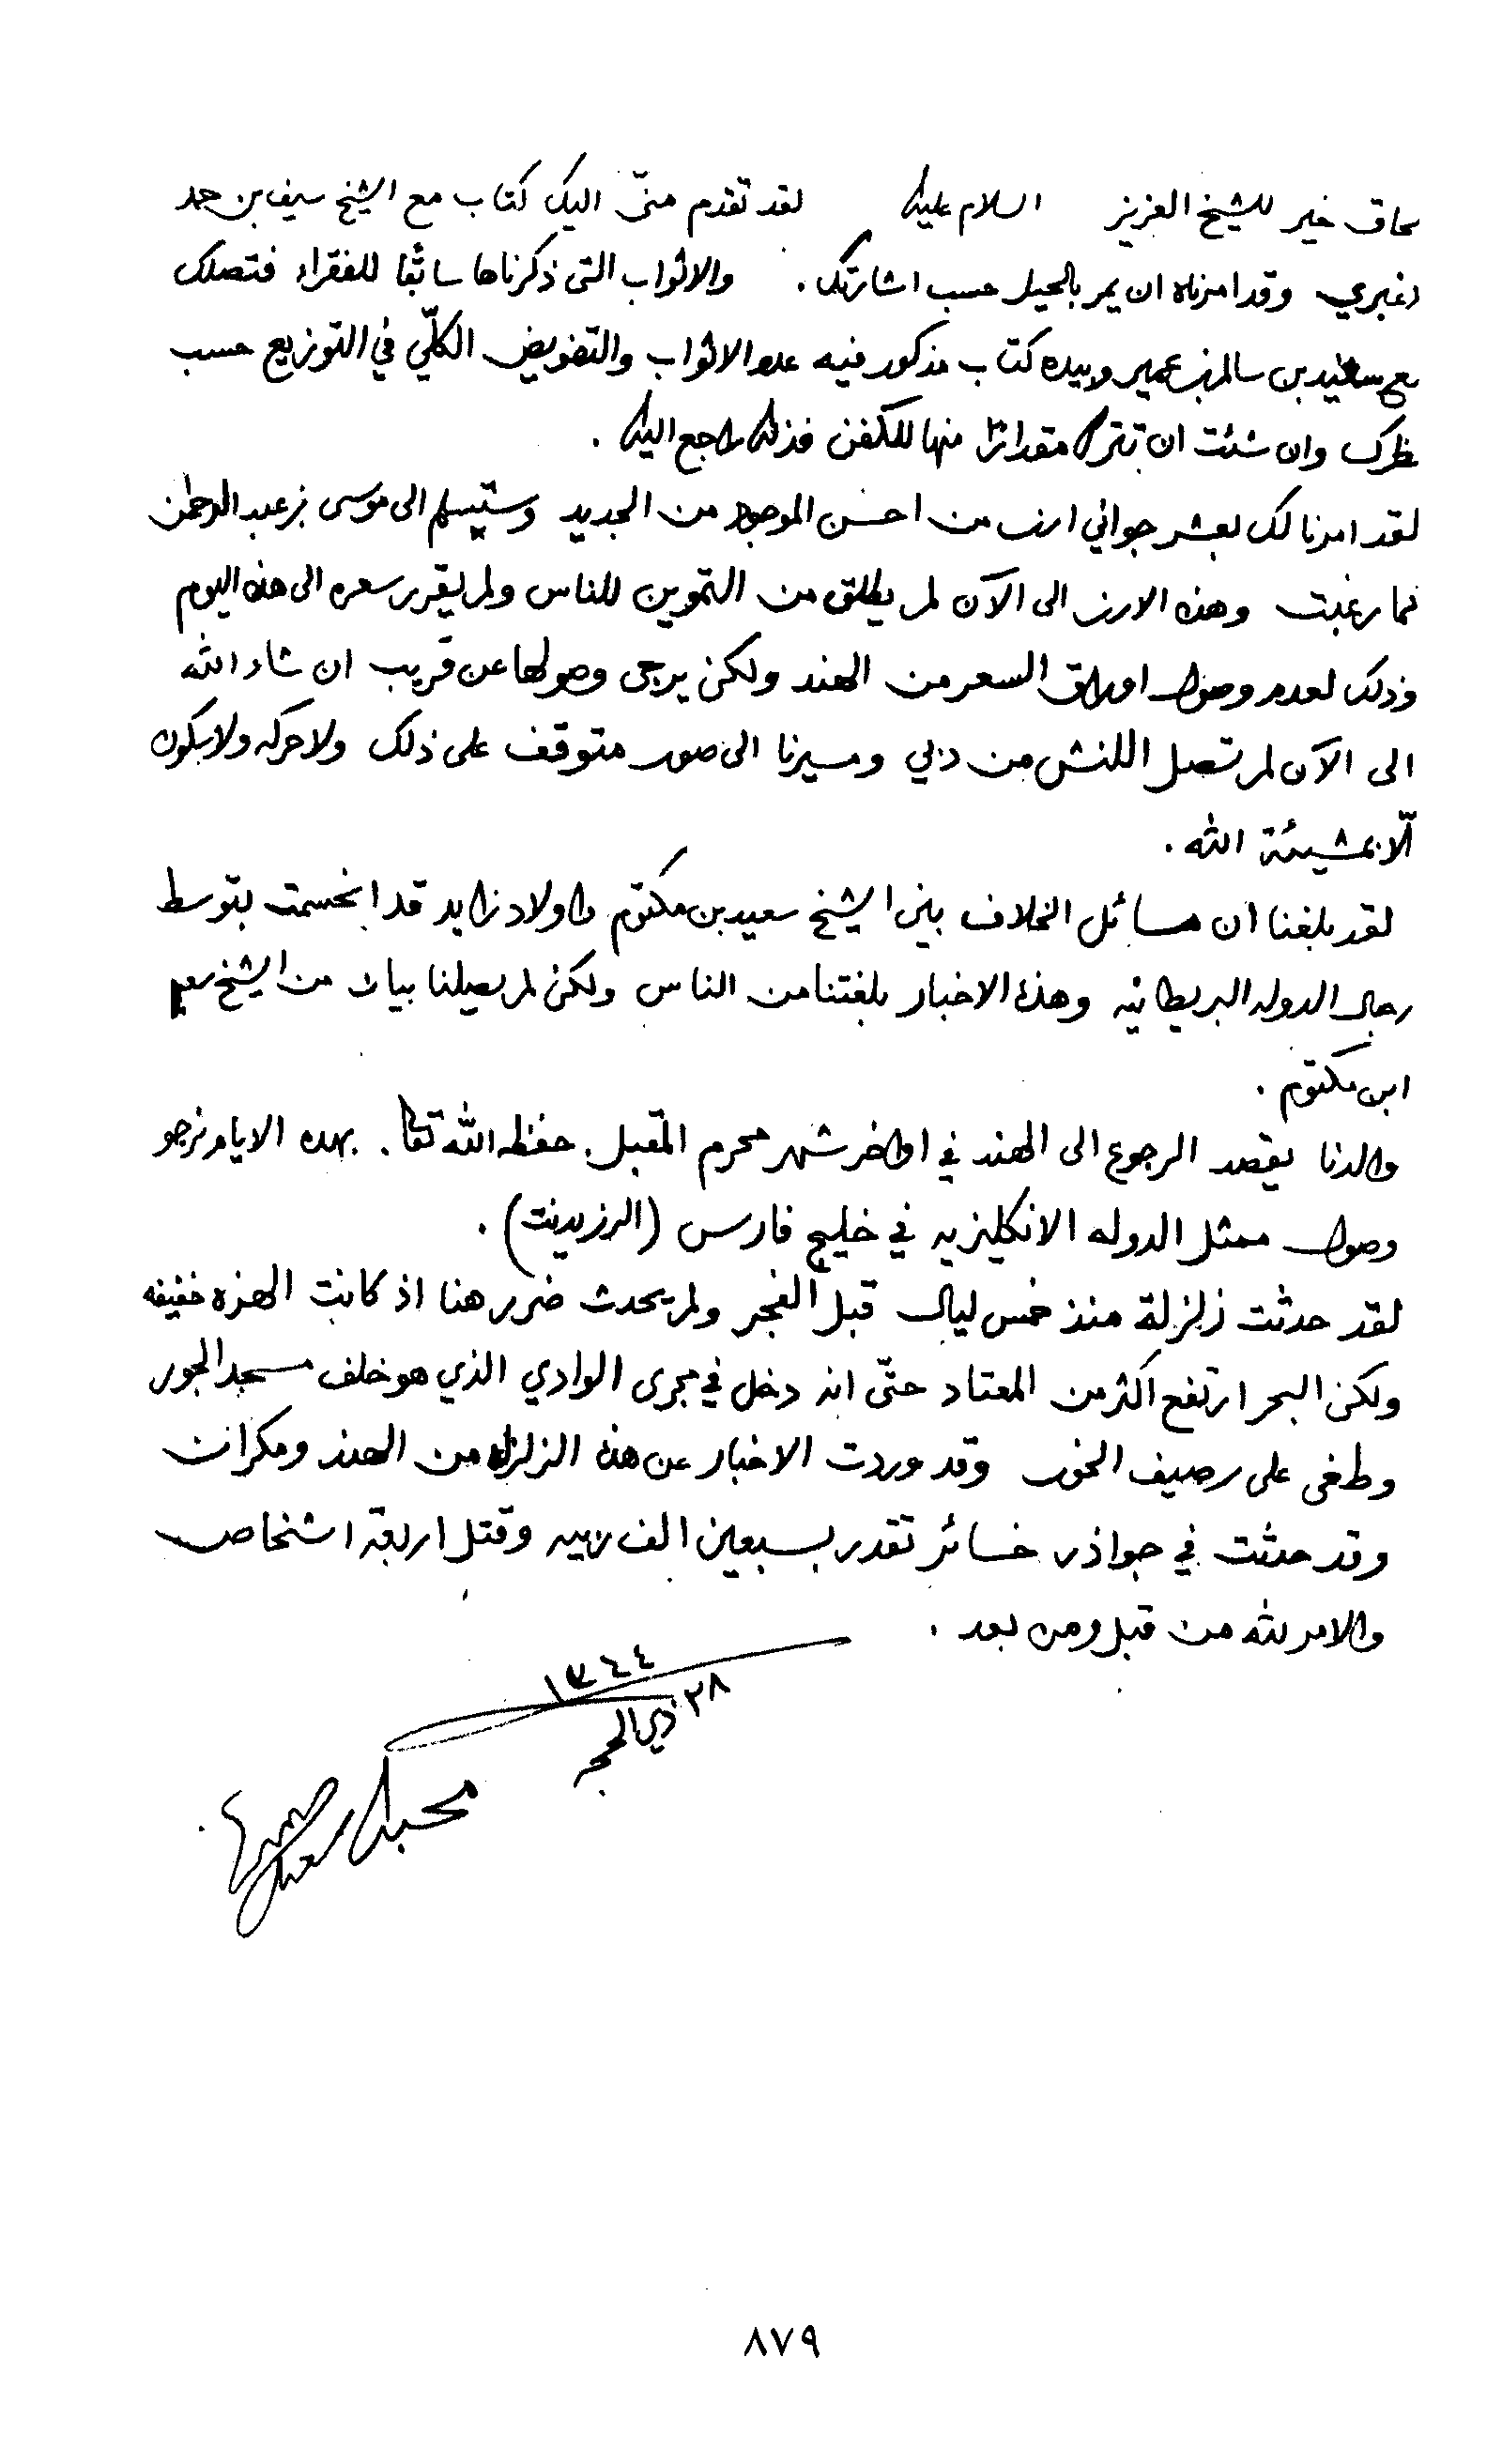 خير للشيخ العزيز السلام عليك لقد تقدم منّي اليك كتاب مع الشيخ سيف بن حمد
اغبري وقد امرناه ان يمر بالحيل حسب اشارتك . والاثواب التى ذكرناها سابقا للفقراء فتصلك
مع سعيد بن سالم بن عمير وبيده كتاب مذكور فيه عدد الاثواب والتفويض الكلّي في التوزيع حسب
نظرك وان شئت ان تترك مقدارًا منها للكفن فذلك راجع اليك .
لقد امرنا لك بعشر جواني ارز من احسن الموجود من الجديد وستسلم الى موسى بن عبدالرحمن
كما رغبت وهذه الارز الى الآن لم يطلق من التموين للناس ولم يقرر سعره الى هذه اليوم
وذلك لعدم وصول اوراق السعر من الهند ولكن يرجى وصولها عن قريب ان شاء الله
الى الآن لم تصل اللنش من دبي ومسيرنا الى صور متوقف على ذلك ولا حركه ولا سكون
الّا بمشيئة الله .
لقد بلغنا ان مسائل الخلاف بين الشيخ سعيد بن مكتوم واولاد زايد قد انحسمت بتوسط
رجال الدوله البريطانيه وهذه الاخبار بلغتنا من الناس ولكن لم يصلنا بيان من الشيخ سعيد
ابن مكتوم .
والدنا يقصد الرجوع الى الهند في اواخر شهر محرم المقبل . حفظه الله تعالى . بهذه الايام نرجو
وصول ممثل الدوله الانكليزيه في خليج فارس (الرزيدنت) .
لقد حدثت زلزلة منذ خمس ليال قبل الفجر ولم يحدث ضرر هنا اذ كانت الهزه خفيفه
ولكن البحر ارتفع اكثر من المعتاد حتّى انه دخل في مجرى الوادي الذي هو خلف مسجد الجور
وطغى على رصيف الخور وقد وردت الاخبار عن هذه الزلزله من الهند ومكران
وقد حدثت في جواذر خسائر تقدر بسبعين الف ربيه وقتل اربعة اشخاص
والامر لله من قبل ومن بعد .
٢٨ ذي الحجه
١٣٦٤
محبك سعيد
٨٧٩